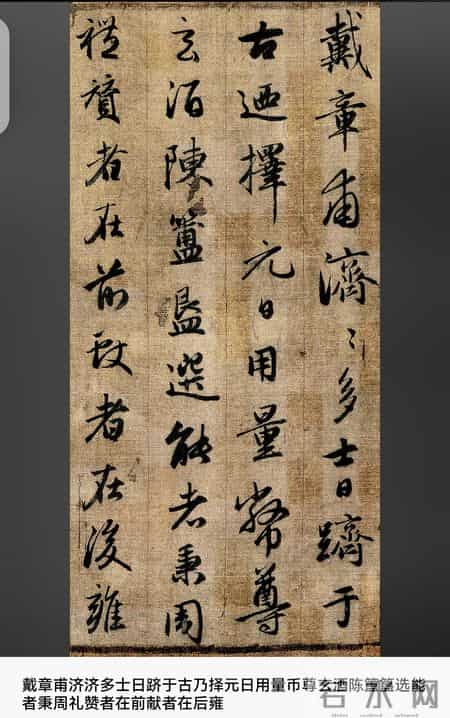 戴章甫濟〻多士日躋于
古廼擇元日用量幣尊
玄酒陳簠簋選能者秉周
禮賛者在前獻者在後雍
戴章甫济济多士日跻于古乃择元日用量币尊玄酒陈簠簋选能
者秉周礼赞者在前献者在后雍